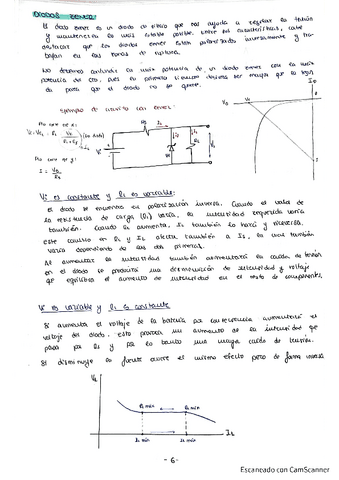 DIODOS ZENER
El diodo zener es un diodo de silicio que nos ayuda a regular la tensión
y mantenerla lo más estable posible. Entre sus características, cabe
destacar que los diodos zener están polarizados inversamente y tra-
bajan en las zonas de ruptura.
No debemos confundir la máx potencia de un diodo zener con la máx
potencia del cto, pues su potencia siempre deberá ser mayor que la
para que el diodo no se queme.
Ejemplo de circuito con zener:
Por corte de x:
Por corte de y:
Vi es constante y RL es variable:
el diodo se encuentra en polarización inversa. Cuando el valor de
la resistencia de carga (RL) varía, la intensidad requerida varía
también. Cuando RL aumenta, IL también lo hará y
este cambio en RL y IL afecta también a Iz, la cual también
varía dependiendo de las dos primeras.
Al aumentar la intensidad también aumentará la caída de tensión
en el diodo se producirá una disminución de intensidad y voltaje
que equilibra el aumento de intensidad en el resto de componentes.
Vi es variable y RL es constante
Si aumenta el voltaje de la batería por consecuencia aumentará el
voltaje del diodo, esto provoca un aumento de la intensidad que
pasa por RL y por lo tanto una mayor caída de tensión.
Si disminuye la fuente ocurre el mismo efecto pero de forma inversa
- 6 -
Escaneado con CamScanner